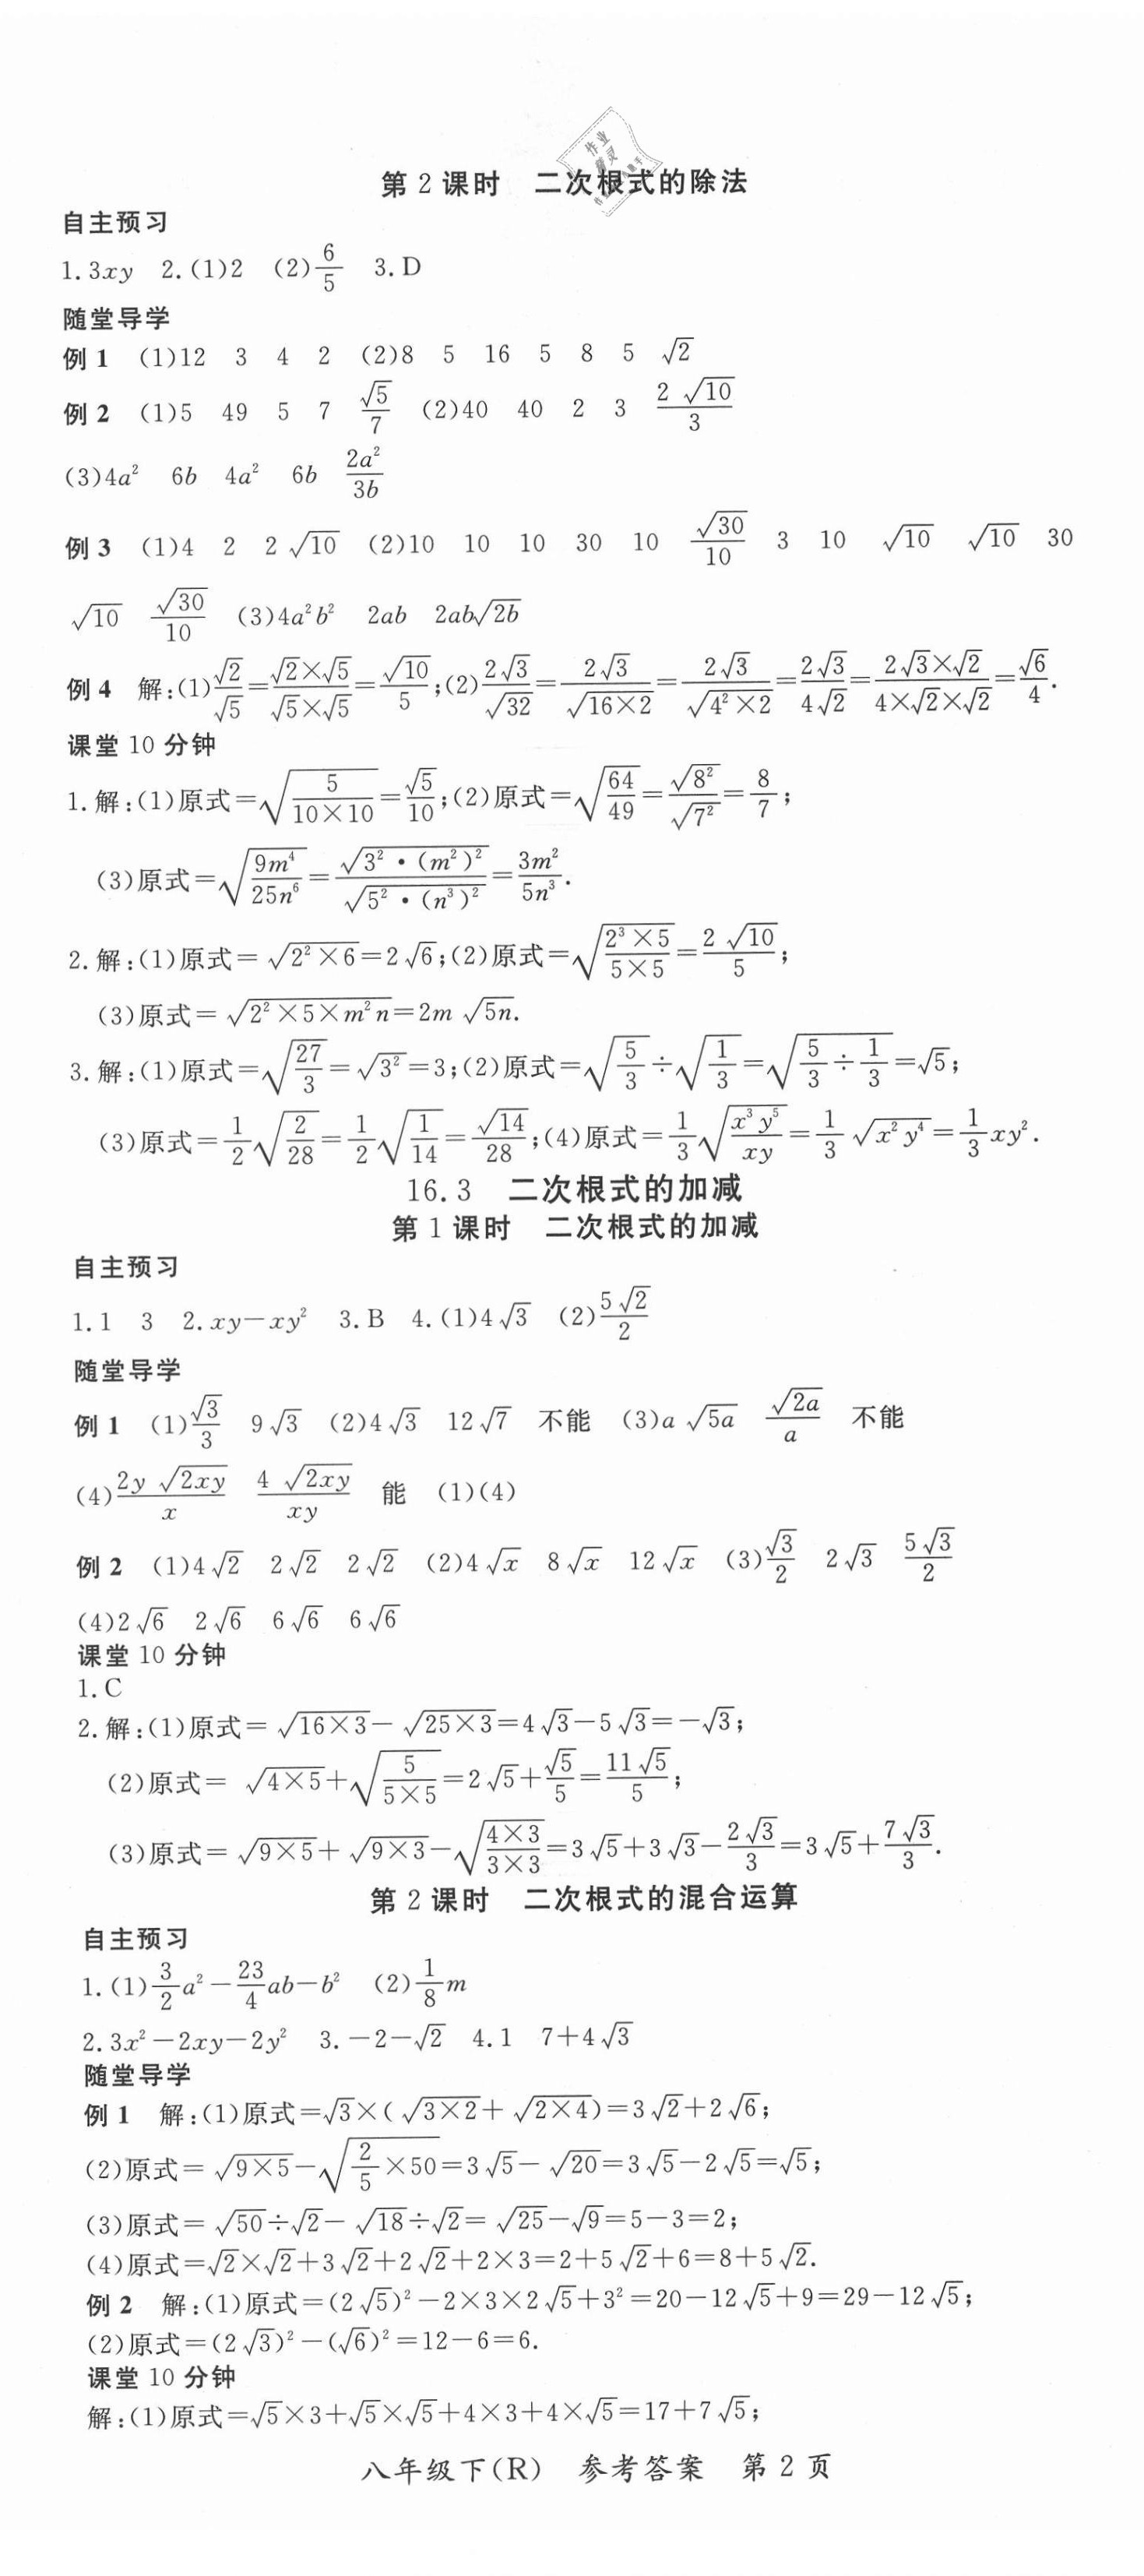 第2课时 二次根式的除法
自主预习
1.3xy 2.(1)2 (2)6/5 3.D
随堂导学
例1 (1)12 3 4 2 (2)8 5 16 5 8 5 √2
例2 (1)5 49 5 7 √5/7 (2)40 40 2 3 2√10/3
(3)4a² 6b 4a² 6b 2a²/3b
例3 (1)4 2 2√10 (2)10 10 10 30 10 √30/10 3 10 √10 √10 30
√10 √30/10 (3)4a²b² 2ab 2ab√2b
例4 解:(1)√2/√5=(√2×√5)/(√5×√5)=√10/5;(2)2√3/√32=2√3/√(16×2)=2√3/√(4²×2)=2√3/4√2=(2√3×√2)/(4×√2×√2)=√6/4.
课堂10分钟
1.解:(1)原式=√(5/(10×10))=√5/10;(2)原式=√(64/49)=√8²/√7²=8/7;
(3)原式=√(9m⁴/25n⁶)=√(3²·(m²)²)/√(5²·(n³)²)=3m²/5n³.
2.解:(1)原式=√(2²×6)=2√6;(2)原式=√((2³×5)/(5×5))=2√10/5;
(3)原式=√(2²×5×m²n)=2m√5n.
3.解:(1)原式=√(27/3)=√3²=3;(2)原式=√(5/3)÷√(1/3)=√(5/3÷1/3)=√5;
(3)原式=1/2√(2/28)=1/2√(1/14)=√14/28;(4)原式=1/3√(x³y⁵/xy)=1/3√(x²y⁴)=1/3xy².
16.3 二次根式的加减
第1课时 二次根式的加减
自主预习
1.1 3 2.xy-xy² 3.B 4.(1)4√3 (2)5√2/2
随堂导学
例1 (1)√3/3 9√3 (2)4√3 12√7 不能 (3)a√5a √2a/a 不能
(4)2y√2xy/x 4√2xy/xy 能 (1)(4)
例2 (1)4√2 2√2 2√2 (2)4√x 8√x 12√x (3)√3/2 2√3 5√3/2
(4)2√6 2√6 6√6 6√6
课堂10分钟
1.C
2.解:(1)原式=√(16×3)-√(25×3)=4√3-5√3=-√3;
(2)原式=√(4×5)+√(5/(5×5))=2√5+√5/5=11√5/5;
(3)原式=√(9×5)+√(9×3)-√((4×3)/(3×3))=3√5+3√3-2√3/3=3√5+7√3/3.
第2课时 二次根式的混合运算
自主预习
1.(1)3/2a²-23/4ab-b² (2)1/8m
2.3x²-2xy-2y² 3.-2-√2 4.1 7+4√3
随堂导学
例1 解:(1)原式=√3×(√(3×2)+√(2×4))=3√2+2√6;
(2)原式=√(9×5)-√(2/5×50)=3√5-√20=3√5-2√5=√5;
(3)原式=√50÷√2-√18÷√2=√25-√9=5-3=2;
(4)原式=√2×√2+3√2+2√2+2×3=2+5√2+6=8+5√2.
例2 解:(1)原式=(2√5)²-2×3×2√5+3²=20-12√5+9=29-12√5;
(2)原式=(2√3)²-(√6)²=12-6=6.
课堂10分钟
解:(1)原式=√5×3+√5×√5+4×3+4×√5=17+7√5;
八年级下(R) 参考答案 第2页